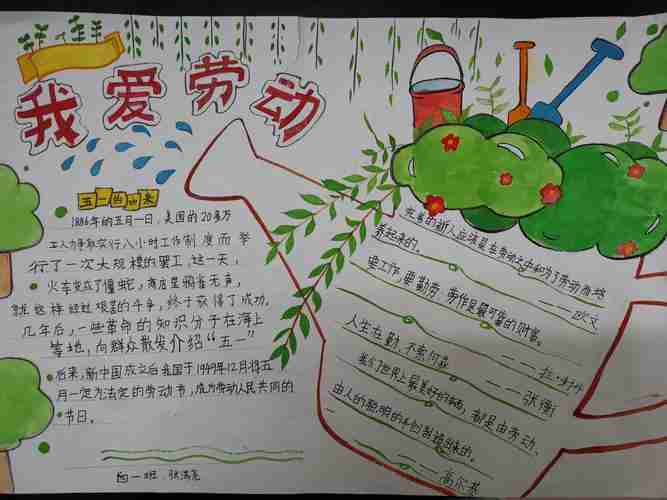 我爱劳动
五一的由来
1886年的五月一日,美国的20多万
工人为争取实行八小时工作制度而举
行了一次大规模的罢工,这一天,
火车变成了僵蛇,商店是鸦雀无声,
就这样经过艰苦的斗争,终于获得了成功。
几年后,一些革命的知识分子在海上
等地,向群众散发介绍“五一”
后来,新中国成立后我国于1949年12月将五
月一定为法定的劳动节,成为劳动人民共同的
节日。
四一班
完善的新人应该是在劳动之中和为了劳动而培
养起来的。
——欧文
要工作,要勤劳,劳作是最可靠的财富。
——拉·封丹
人生在勤,不索何获
——张衡
我们世界上最美好的东西,都是由劳动、
由人的聪明的手创造出来的。
——高尔基